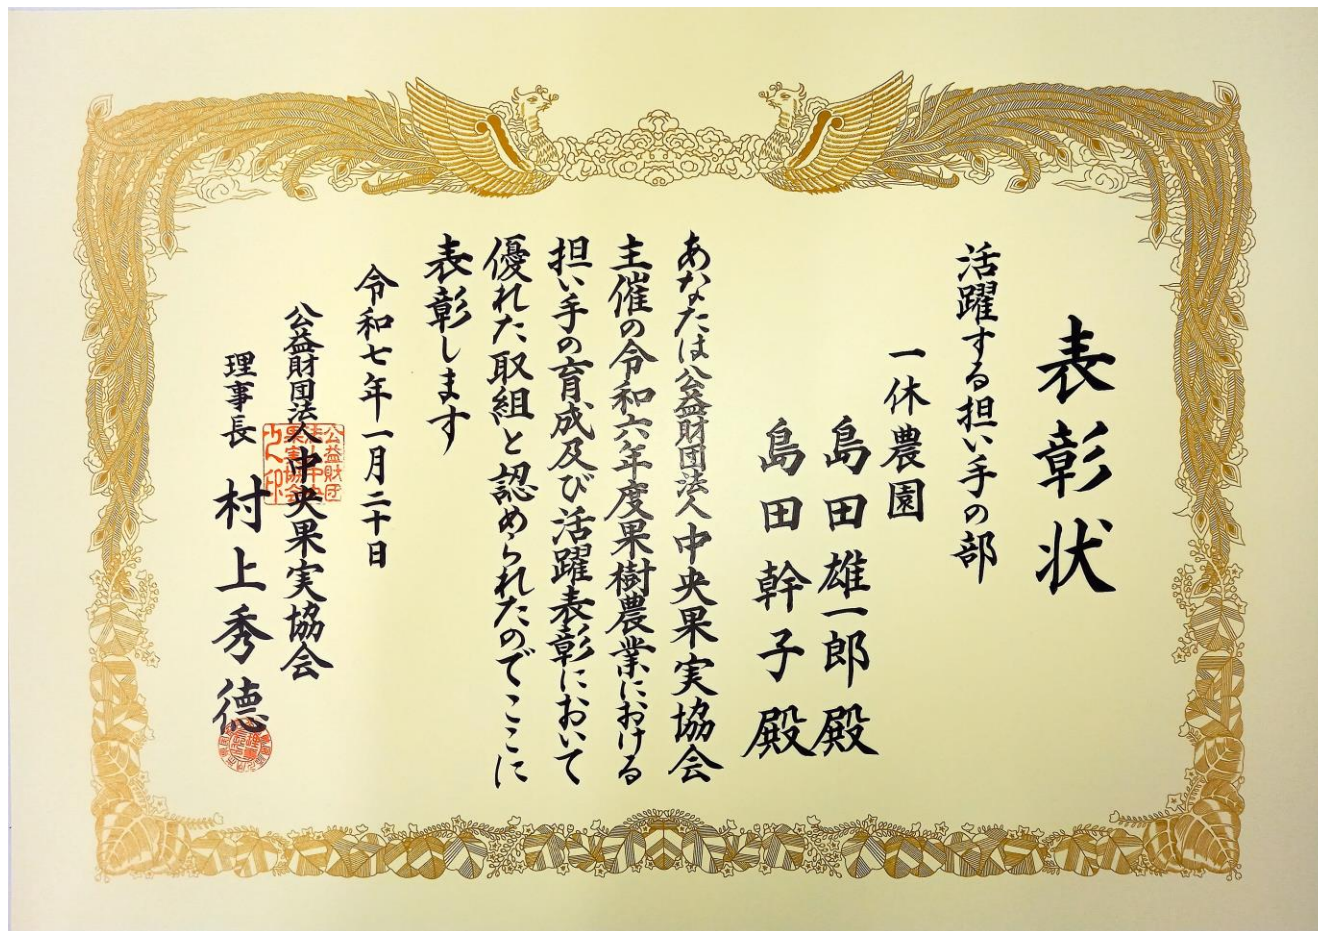 表彰状
活躍する担い手の部
一休農園
島田雄一郎殿
島田幹子殿
あなたは公益財団法人中央果実協会
主催の令和六年度果樹農業における
担い手の育成及び活躍表彰において
優れた取組と認められたのでここに
表彰します
令和七年一月二十日
公益財団法人中央果実協会
理事長 村上秀徳
公益財団
法人中央
果実協会
之印